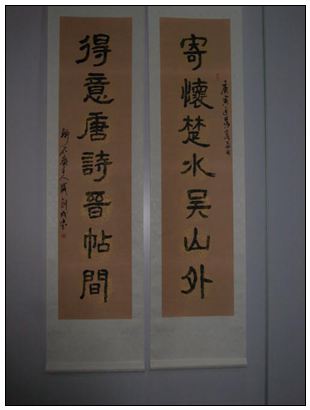 寄懷楚水吴山外
得意唐詩晉帖間